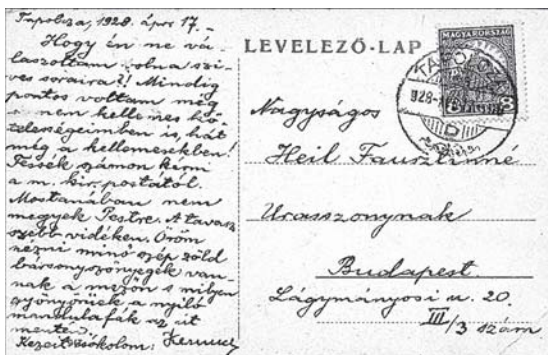 Tapolcza, 1928. ápr 17.–
Hogy én ne vá-
laszoltam volna szi-
ves soraira?! Mindig
pontos voltam még
nem kellemes kö-
telességeimben is, hát
még a kellemesekben!
Tessék számon kérni
a m. kir. postától.
Mostanában nem
megyek Pestre. A tavasz
szebb vidéken. Öröm
nézni minő szép zöld
bársonyszőnyegek van-
nak a mezőn s milyen
gyönyörűek a nyiló
mandulafák az út
mentén.
Kezeit csókolom:
LEVELEZŐ-LAP
MAGYARORSZÁG
8 FILLÉR 8
TAPOLCZA
928
D
Nagyságos
Heil Fausztinné
Urasszonynak
Budapest.
Lágymányosi u. 20.
III/3 szám